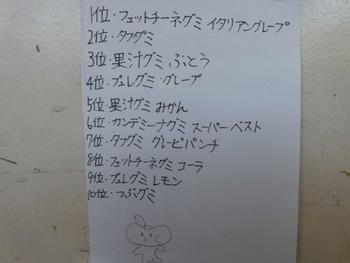 1位・フェットチーネグミ イタリアングレープ
2位・タフグミ
3位・果汁グミ ぶとう
4位・ピュレグミ グレープ
5位・果汁グミ みかん
6位・カンデミーナグミ スーパーベスト
7位・タフグミ グレーピパンチ
8位・フェットチーネグミ コーラ
9位・ピュレグミ レモン
10位・つぶグミ